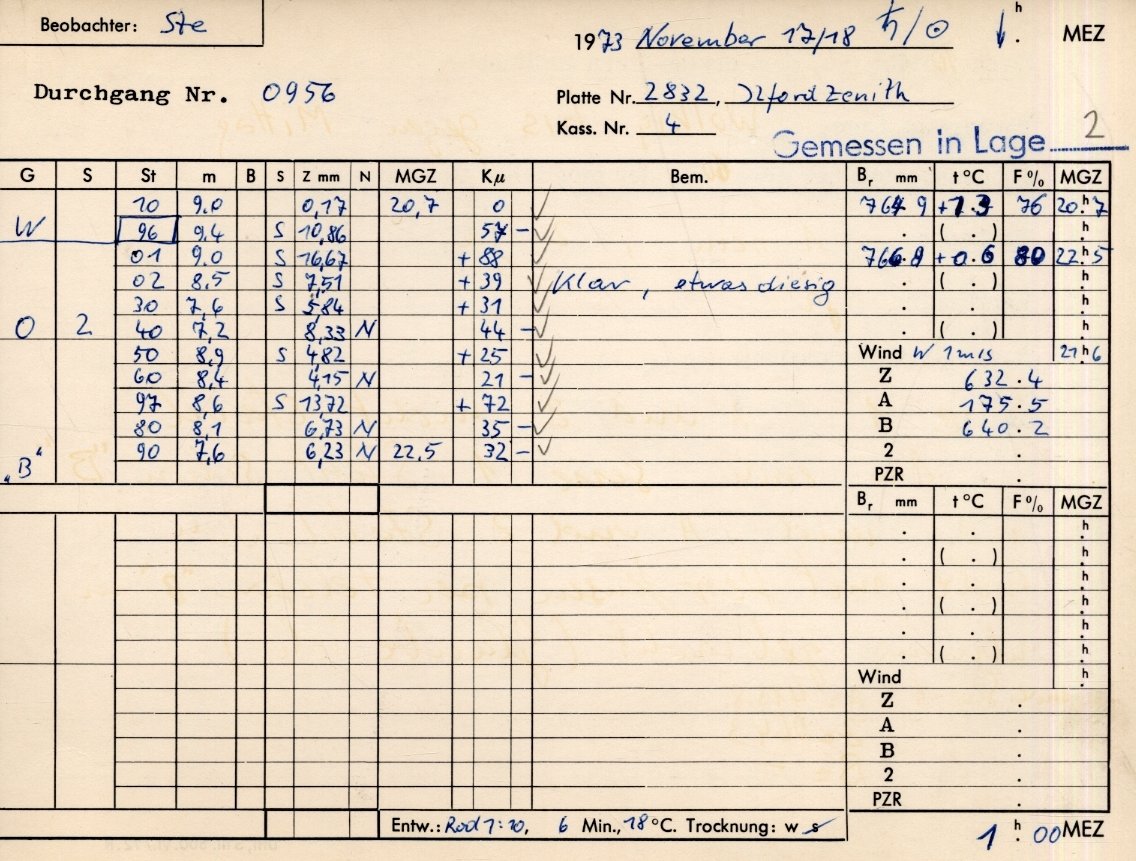 Beobachter: Ste
1973 November 17/18 ♄/☉ h . MEZ
Durchgang Nr. 0956
Platte Nr. 2832, Ilford Zenith
Kass. Nr. 4
Gemessen in Lage 2
G S St m B S Z mm N MGZ Kµ Bem. Br mm t °C F % MGZ
10 9.0 0,17 20,7 0 +1.3 76 20.h7
W 96 9,4 S 10,86 57 - . ( . ) h.
01 9.0 S 16,67 + 88 766.8 +0.6 80 22.h5
02 8,5 S 7,51 + 39 Klar, etwas diesig . ( . ) h.
30 7,6 S 5,84 + 31 . h.
O 2 40 7,2 8,33 N 44 - . ( . ) h.
50 8,9 S 4,82 + 25 Wind W 1 m/s 21h6
60 8,4 4,15 N 21 - Z 632.4
97 8,6 S 13,72 + 72 A 175.5
80 8,1 6,73 N 35 - B 640.2
90 7,6 6,23 N 22,5 32 - 2 .
"B" PZR .
Br mm t °C F % MGZ
. . h.
. ( . ) h.
. . h.
. ( . ) h.
. . h.
. ( . ) h.
Wind h.
Z .
A .
B .
2 .
PZR .
Entw.: Rod 1:10, 6 Min., 18 °C. Trocknung: w s
1 h. 00 MEZ